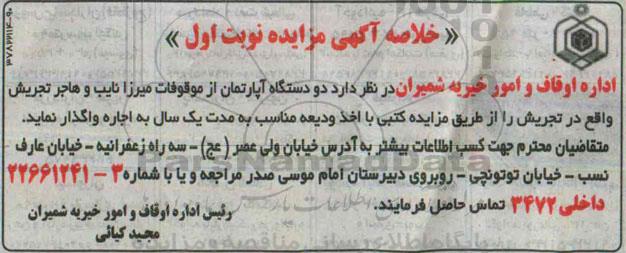 « خلاصه آگهی مزایده نوبت اول »
اداره اوقاف و امور خیریه شمیران در نظر دارد دو دستگاه آپارتمان از موقوفات میرزا نایب و هاجر تجریش
واقع در تجریش را از طریق مزایده کتبی با اخذ ودیعه مناسب به مدت یک سال به اجاره واگذار نماید.
متقاضیان محترم جهت کسب اطلاعات بیشتر به آدرس خیابان ولی عصر (عج) - سه راه زعفرانیه - خیابان عارف
نسب - خیابان توتونچی - روبروی دبیرستان امام موسی صدر مراجعه و یا با شماره ۳ - ۲۲۶۶۱۲۴۱
داخلی ۳۴۷۲ تماس حاصل فرمایند.
رئیس اداره اوقاف و امور خیریه شمیران
مجید کیائی
ParsNamadData